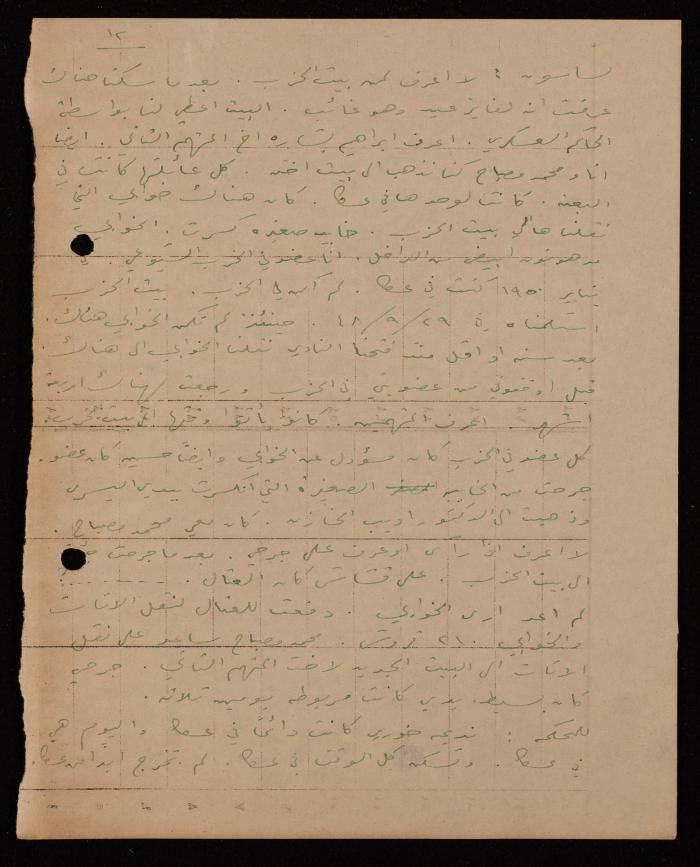 ١٢
لساسون : لا اعرف لمن بيت الحزب . بعد ما سكنا هناك
عرفت انه لفايز عيد وهو غائب . البيت اعطي لنا بواسطة
الحاكم العسكري . اعرف ابراهيم بشاره اخ المتهم الثاني . ايضا
انا و محمد مصباح كنا نذهب الى بيت اخته . كل عائلتها كانت في
البعنه . كانت لوحدها في عكا . كان هناك خوابي التي
نقلناها الى بيت الحزب . خابيه صغيره كسرت . الخوابي
مدهونون ابيض من الداخل . انا عضو في الحزب الشيوعي . في
يناير ١٩٥٠ كنت في عكا . لم اكن في الحزب . بيت الحزب
استلمناه في ٤٨/٩/٢٩ . حينئذ لم تكن الخوابي هناك .
بعد سنه او اقل منذ فتحنا النادي نقلنا الخوابي الى هناك .
قبل اوقفوني من عضويتي في الحزب ورجعت نهناك اربعة
اشهر . اعرف المتهمين . كانوا يأتوا وقتها الى بيت الحزب .
كل عضو في الحزب كان مسؤول عن الخوابي وايضاً حسين كان عضو .
جرحت من الخابيه الصغيره التي انكسرت بيدي اليسرى
وذهبت الى الدكتور اديب الخازن . كان معي محمد مصباح .
لا اعرف اذا رأى او عرف على جرحي . بعد ما جرحت
الى بيت الحزب . على قشاش كان العتال .
لم اعد ارى الخوابي . دفعت للعتال لنقل الاثاث
والخوابي ٢١٠ قروش . محمد مصباح ساعد على نقل
الاثاث الى البيت الجديد لاخت المتهم الثاني . جرحي
كان بسيط . يدي كانت مربوطه يومين ثلاثه .
للمحكمه : نديمه خوري كانت دائماً في عكا واليوم هي
في عكا . وتسكن كل الوقت في عكا . لم تخرج ابداً من عكا .